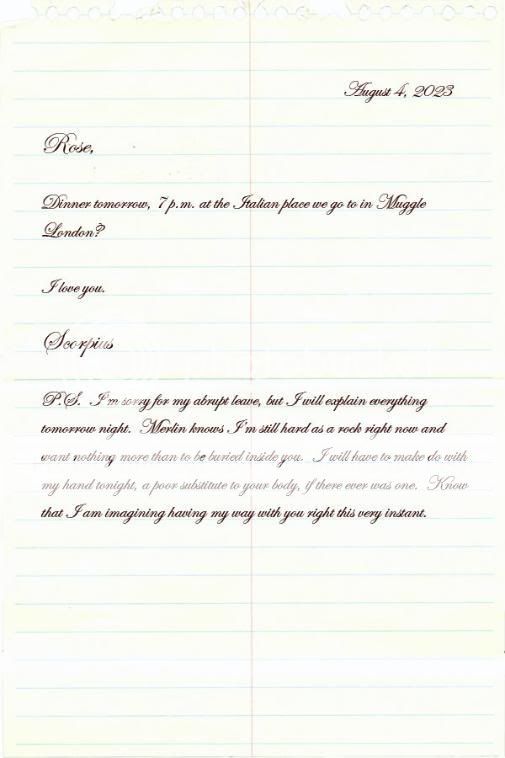 August 4, 2023
Rose,
Dinner tomorrow, 7 p.m. at the Italian place we go to in Muggle
London?
I love you.
Scorpius
P.S. I'm sorry for my abrupt leave, but I will explain everything
tomorrow night. Merlin knows I'm still hard as a rock right now and
want nothing more than to be buried inside you. I will have to make do with
my hand tonight, a poor substitute to your body, if there ever was one. Know
that I am imagining having my way with you right this very instant.